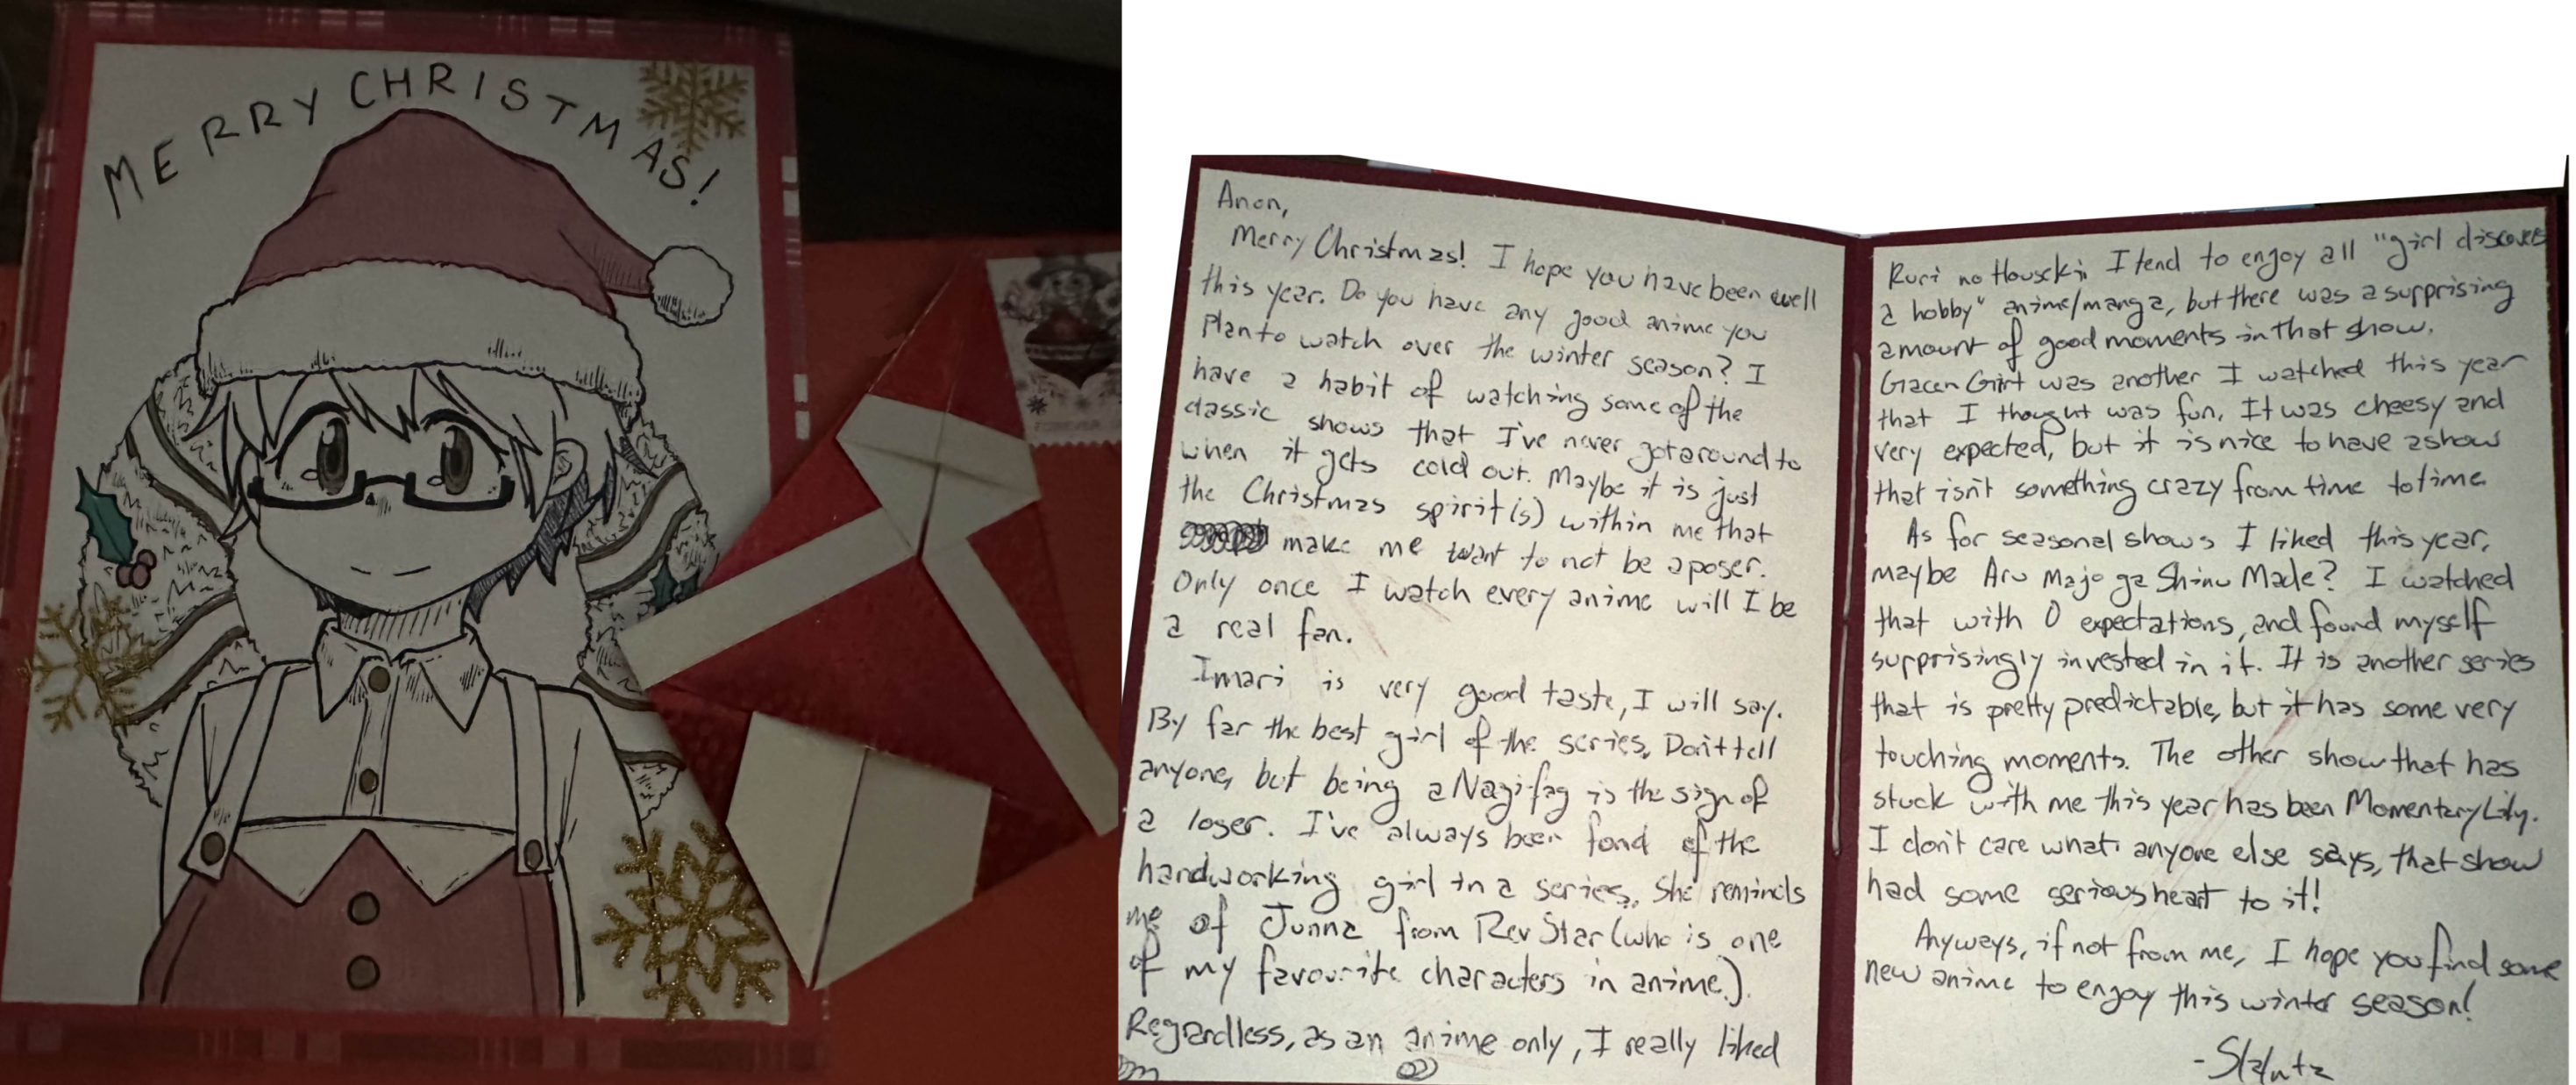 MERRY CHRISTMAS!
Anon,
Merry Christmas! I hope you have been well
this year. Do you have any good anime you
plan to watch over the winter season? I
have a habit of watching some of the
classic shows that I've never got around to
when it gets cold out. Maybe it is just
the Christmas spirit(s) within me that
make me want to not be a poser.
Only once I watch every anime will I be
a real fan.
Imari is very good taste, I will say.
By far the best girl of the series. Don't tell
anyone, but being a Nagifag is the sign of
a loser. I've always been fond of the
handworking girl in a series. She reminds
me of Junna from Rev Star (who is one
of my favourite characters in anime).
Regardless, as an anime only, I really liked
Ruri no Houseki. I tend to enjoy all "girl discovers
a hobby" anime/manga, but there was a surprising
amount of good moments in that show.
Gacen Girl was another I watched this year
that I thought was fun. It was cheesy and
very expected, but it is nice to have a show
that isn't something crazy from time to time.
As for seasonal shows I liked this year,
maybe Aru Majo ga Shinu Made? I watched
that with 0 expectations, and found myself
surprisingly invested in it. It is another series
that is pretty predictable, but it has some very
touching moments. The other show that has
stuck with me this year has been Momentary Lily.
I don't care what anyone else says, that show
had some serious heart to it!
Anyways, if not from me, I hope you find some
new anime to enjoy this winter season!